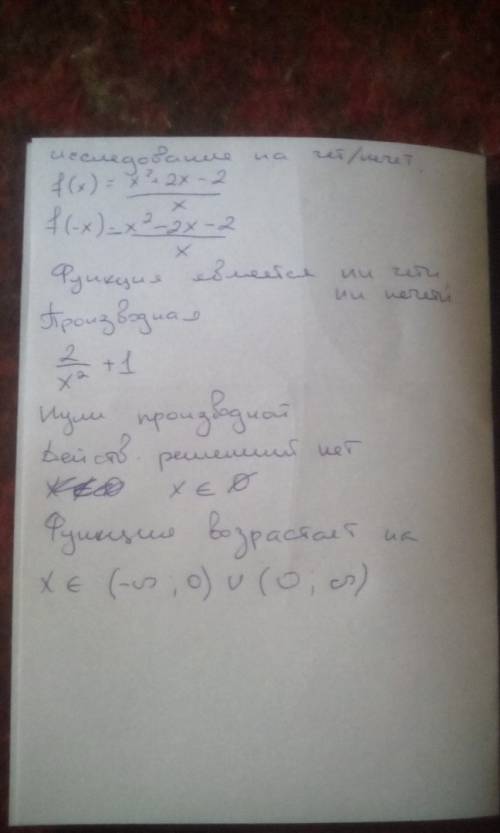 исследование на чет/нечет.
f(x) = x²+2x-2
x
f(-x) = x²-2x-2
x
Функция является ни четн.
ни нечетн.
Производная
2/x² +1
Нули производной
Действ. решений нет
x ∈ ∅
Функция возрастает на
x ∈ (-∞, 0) ∪ (0, ∞)